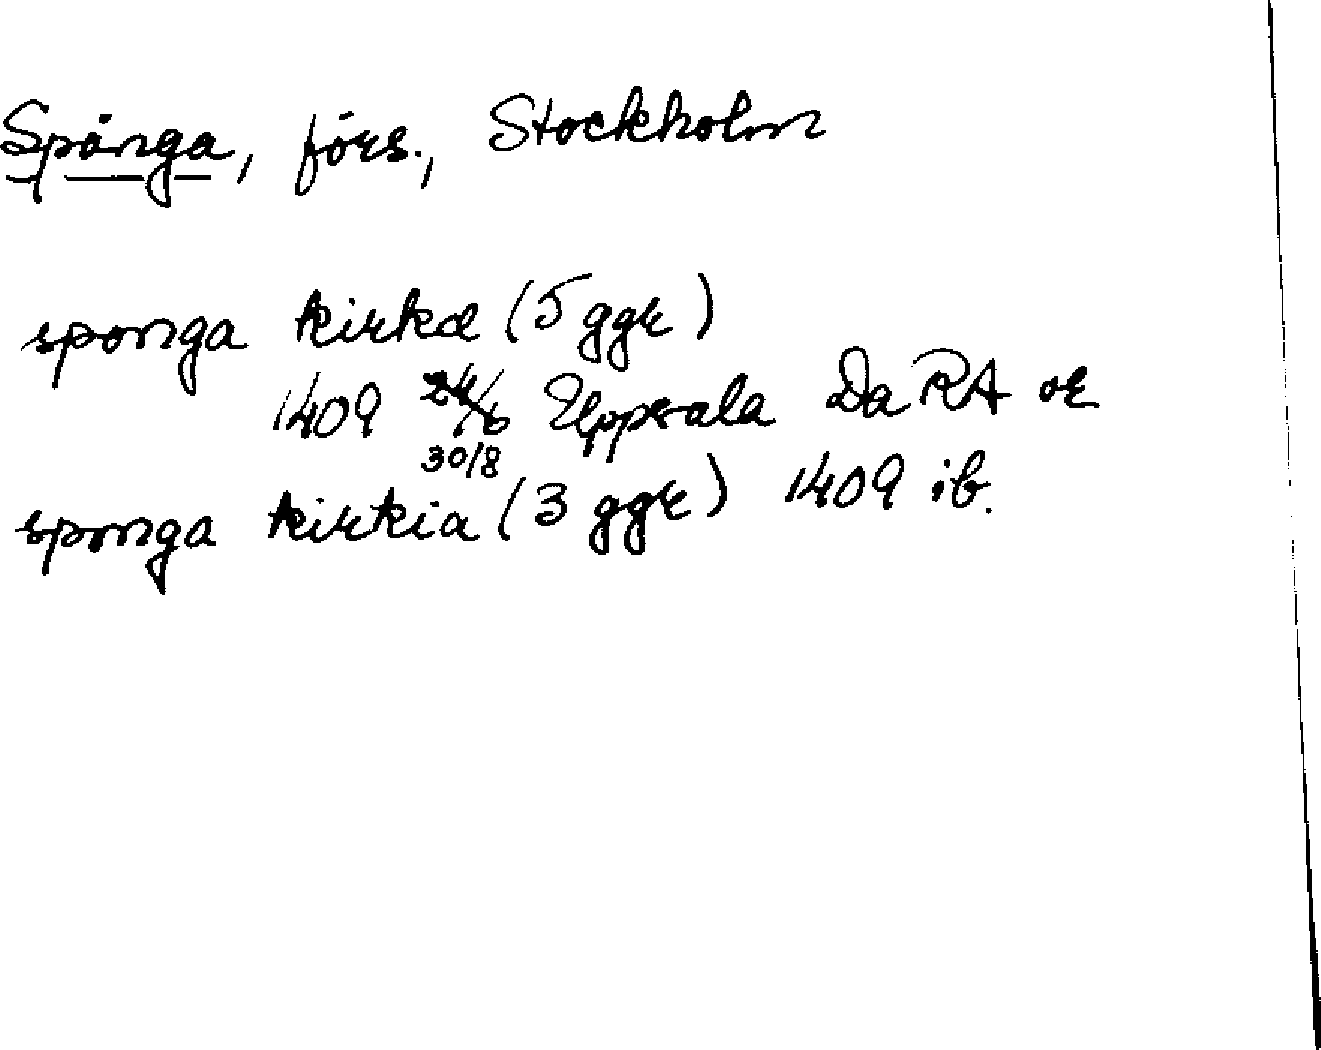 Spånga, förs., Stockholm
sponga kirkæ (5 ggr)
1409 24/6 Uppsala Da RA or
30/8
sponga kirkia (3 ggr) 1409 ib.